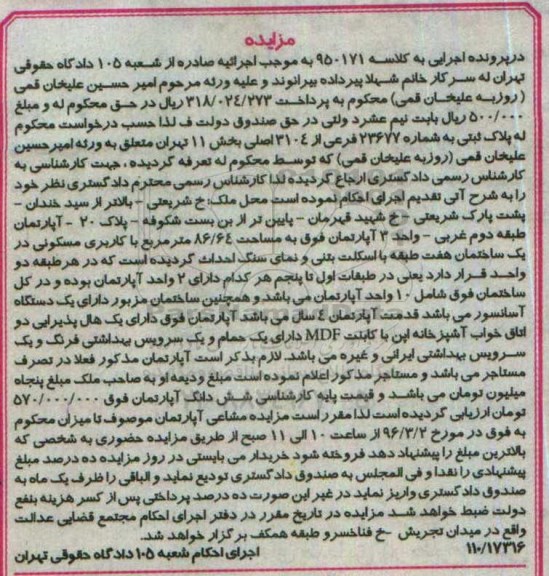 مزایده
درپرونده اجرایی به کلاسه ۹۵۰۱۷۱ به موجب اجرائیه صادره از شعبه ۱۰۵ دادگاه حقوقی
تهران له سرکار خانم شهلا پیرداده بیرانوند و علیه ورثه مرحوم امیر حسین علیخان قمی
(روزبه علیخان قمی) محکوم به پرداخت ۳۱۸/۰۲۴/۲۷۳ ریال در حق محکوم له و مبلغ
۵۰۰/۰۰۰ ریال بابت نیم عشرد ولتی در حق صندوق دولت ف لذا حسب درخواست محکوم
له پلاک ثبتی به شماره ۲۳۶۷۷ فرعی از ۳۱۰۴ اصلی بخش ۱۱ تهران متعلق به ورثه امیرحسین
علیخان قمی (روزبه علیخان قمی) که توسط محکوم له تعرفه گردیده، جهت کارشناسی به
کارشناس رسمی دادگستری ارجاع گردیده لذا کارشناس رسمی محترم دادگستری نظر خود
را به شرح آتی تقدیم اجرای احکام نموده است محل ملک: خ شریعتی - بالاتر از سید خندان -
پشت پارک شریعتی - خ شهید قهرمان - پایین تر از بن بست شکوفه - پلاک ۲۰ - آپارتمان
طبقه دوم غربی - واحد ۳ آپارتمان فوق به مساحت ۸۶/۶۴ مترمربع با کاربری مسکونی در
یک ساختمان هفت طبقه با اسکلت بتنی و نمای سنگ احداث گردیده است که در هر طبقه دو
واحد قرار دارد یعنی در طبقات اول تا پنجم هر کدام دارای ۲ واحد آپارتمان بوده و در کل
ساختمان فوق شامل ۱۰ واحد آپارتمان می باشد و همچنین ساختمان مزبور دارای یک دستگاه
آسانسور می باشد قدمت آپارتمان ٤ سال می باشد آپارتمان فوق دارای یک هال پذیرایی دو
اتاق خواب آشپزخانه اپن با کابنت MDF دارای یک حمام و یک سرویس بهداشتی فرنگ و یک
سرویس بهداشتی ایرانی و غیره می باشد. لازم بذکر است آپارتمان مذکور فعلا در تصرف
مستاجر می باشد و مستاجر مذکور اعلام نموده است مبلغ ودیعه او به صاحب ملک مبلغ پنجاه
میلیون تومان می باشد و قیمت پایه کارشناس شش دانگ آپارتمان فوق ۵۷۰/۰۰۰/۰۰۰
تومان ارزیابی گردیده است لذا مقرر است مزایده مشاعی آپارتمان موصوف تا میزان محکوم
به فوق در مورخ ۹۶/۳/۲ از ساعت ۱۰ الی ۱۱ صبح از طریق مزایده حضوری به شخصی که
بالاترین مبلغ را پیشنهاد دهد فروخته شود خریدار می بایستی در روز مزایده ده درصد مبلغ
پیشنهادی را نقدا و فی المجلس به صندوق دادگستری تودیع نماید و الباقی را ظرف یک ماه به
صندوق دادگستری واریز نماید در غیر این صورت ده درصد پرداختی پس از کسر هزینه بنفع
دولت ضبط خواهد شد مزایده در تاریخ مقرر در دفتر اجرای احکام مجتمع قضایی عدالت
واقع در میدان تجریش - خ فناخسرو طبقه همکف برگزار خواهد شد.
۱۱۰/۱۷۳۱۶ اجرای احکام شعبه ۱۰۵ دادگاه حقوقی تهران